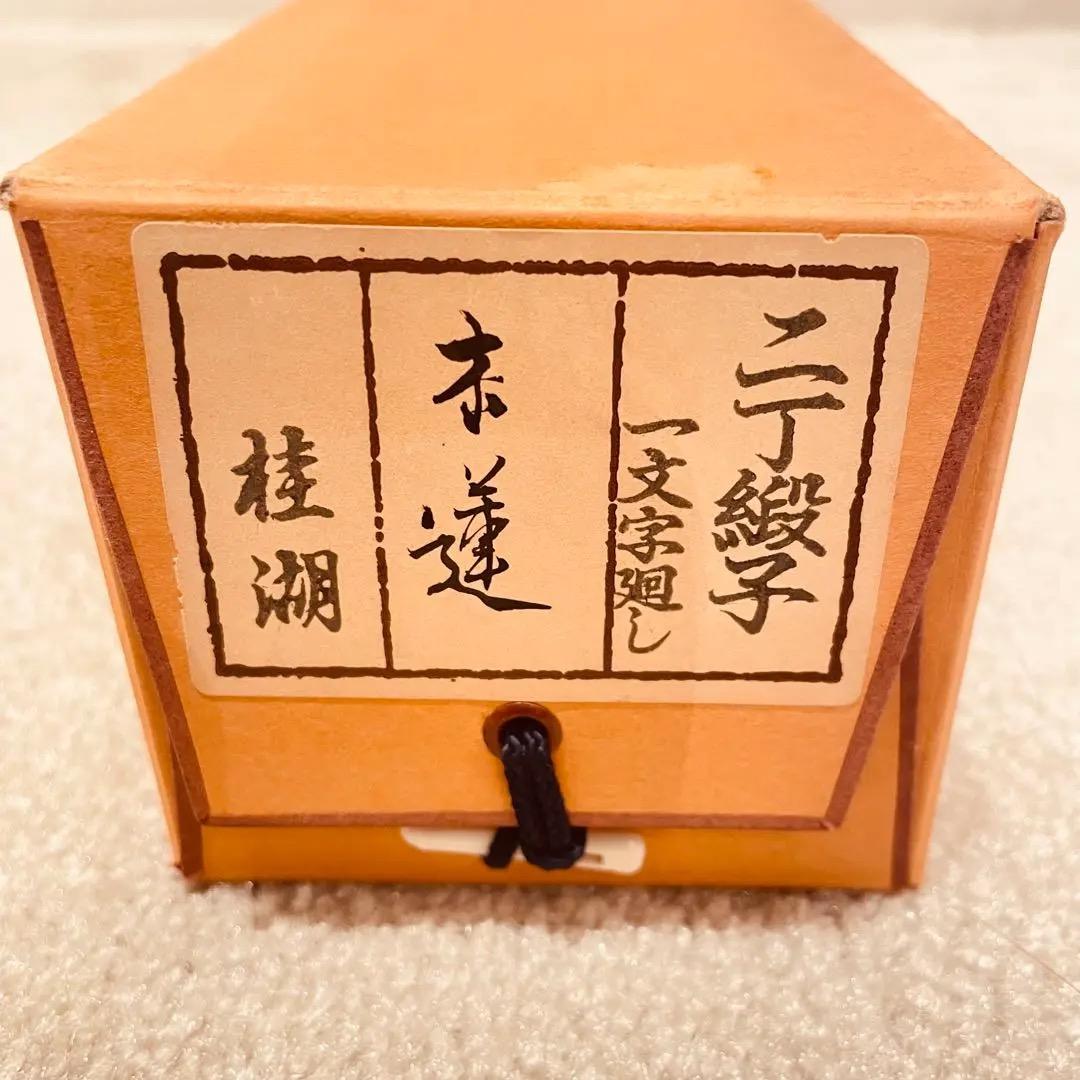 二丁緞子
一文字廻し
木蓮
桂湖